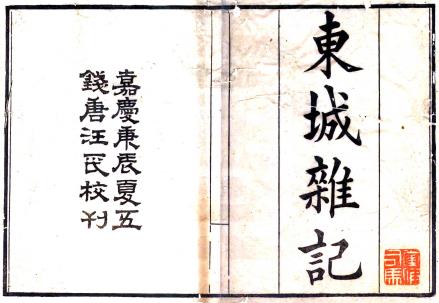 東城雜記
嘉慶庚辰夏五
錢唐汪氏校刊